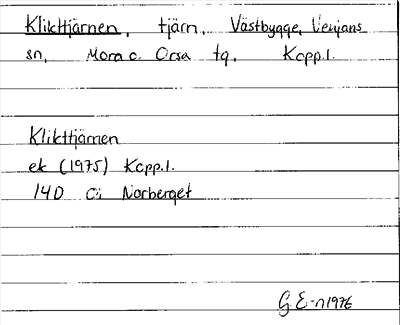 Klikttjärnen, tjärn, Västbygge, Venjans
sn, Mora o. Orsa tg, Kopp.l.
Klikttjärnen
ek (1975) Kopp.l.
14D Norberget
G E-n 1976